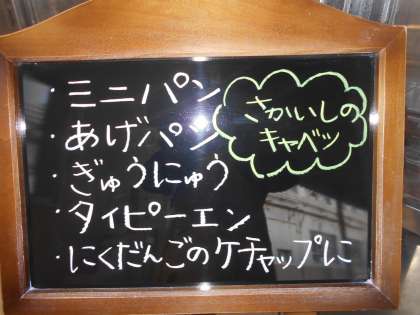 ・ミニパン
・あげパン
・ぎゅうにゅう
・タイピーエン
・にくだんごのケチャップに
さかいしの
キャベツ